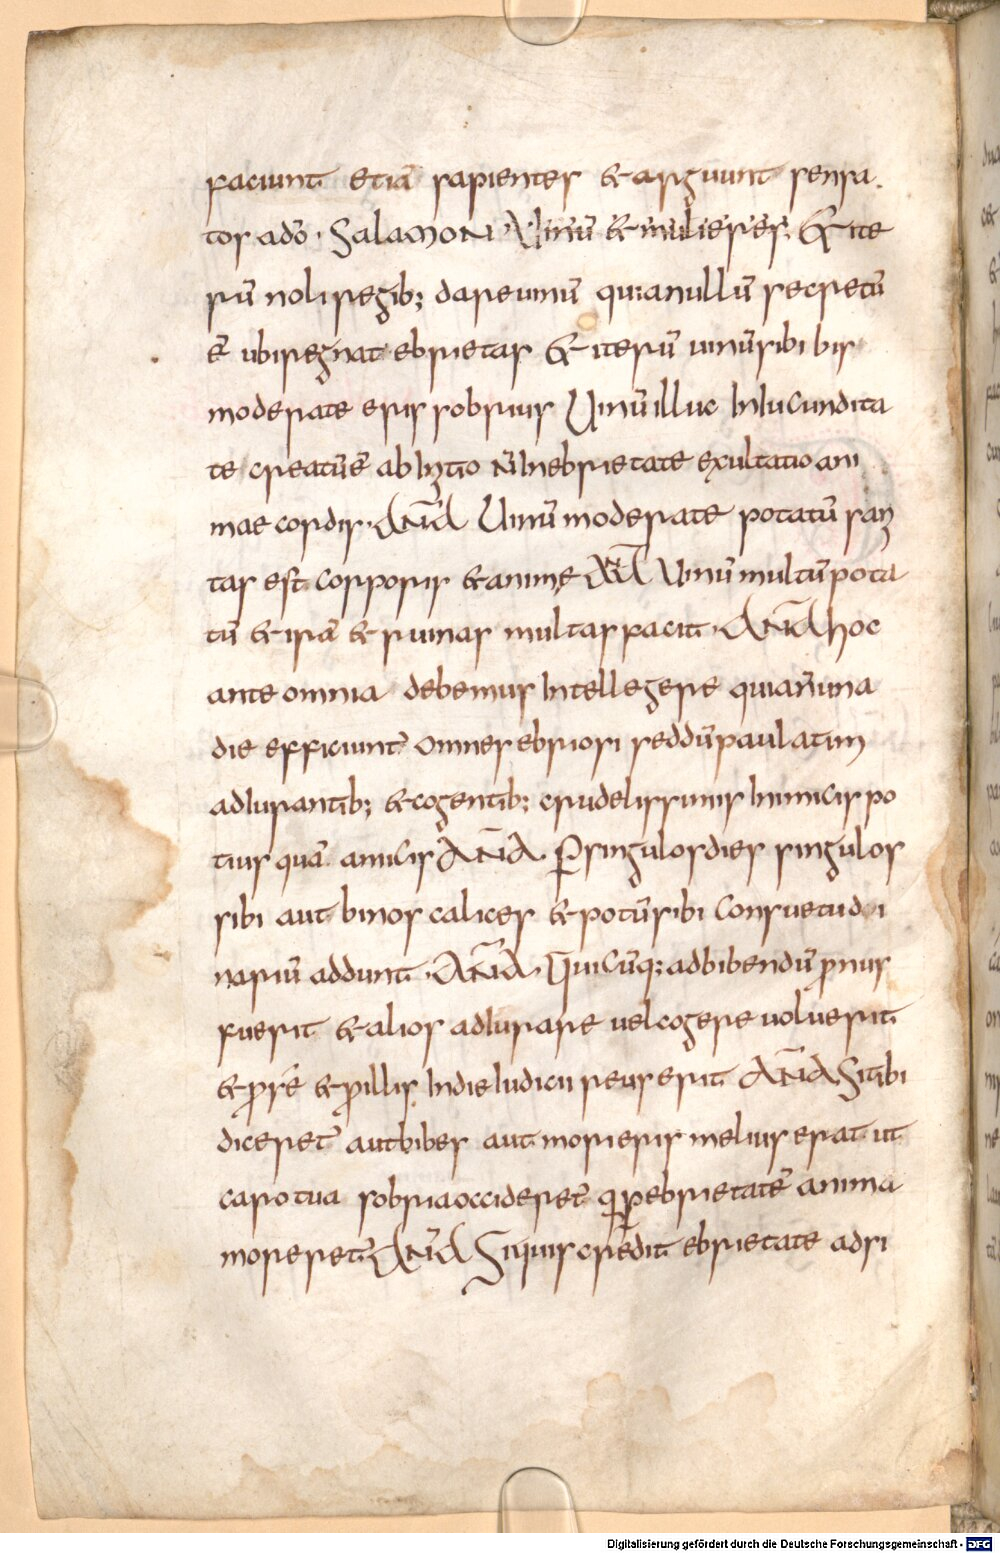 faciunt etiā sapientes & arguunt sensa
tos ad dō · Salamon Uinū & mulieres. & ite
rū noli regib; dare uinū quia nullū secretū
ē ubi regnat ebrietas & iterū uinū si bibis
moderate eris sobrius Uinū illuc In Iucundita
te creatū ē ab Initio n̄ In ebrietate exultatio ani
mae cordis · ANĀ Uinū moderate potatū sani
tas est corporis & anime ANĀ Uinū multū pota
tū & irā & ruinas multas facit · ANĀ hoc
ante omnia debemus Intellegere quia n̄ una
die efficiunt̄ omnes ebriosi sed dū paulatim
adIurantib; & cogentib; crudelissimis Inimicis po
tius quā amicis ANĀ · P̱ singulos dies singulos
sibi aut binos calices & potū sibi Consuetudi
nariū addunt · ANĀ · Quicūq; ad bibendū p̄nus
fuerit & alios adIurare uel cogere uoluerit
& p̄ sē & p̄ illis In die Iudicii reus erit ANĀ Si tibi
diceret̄ aut bibes aut morieris melius erat ut
caro tua sobria occideret̄ q̄ p̱ ebrietatē anima
moreret̄ ANĀ Siquis credit ebrietate adsi
Digitalisierung gefördert durch die Deutsche Forschungsgemeinschaft - DFG